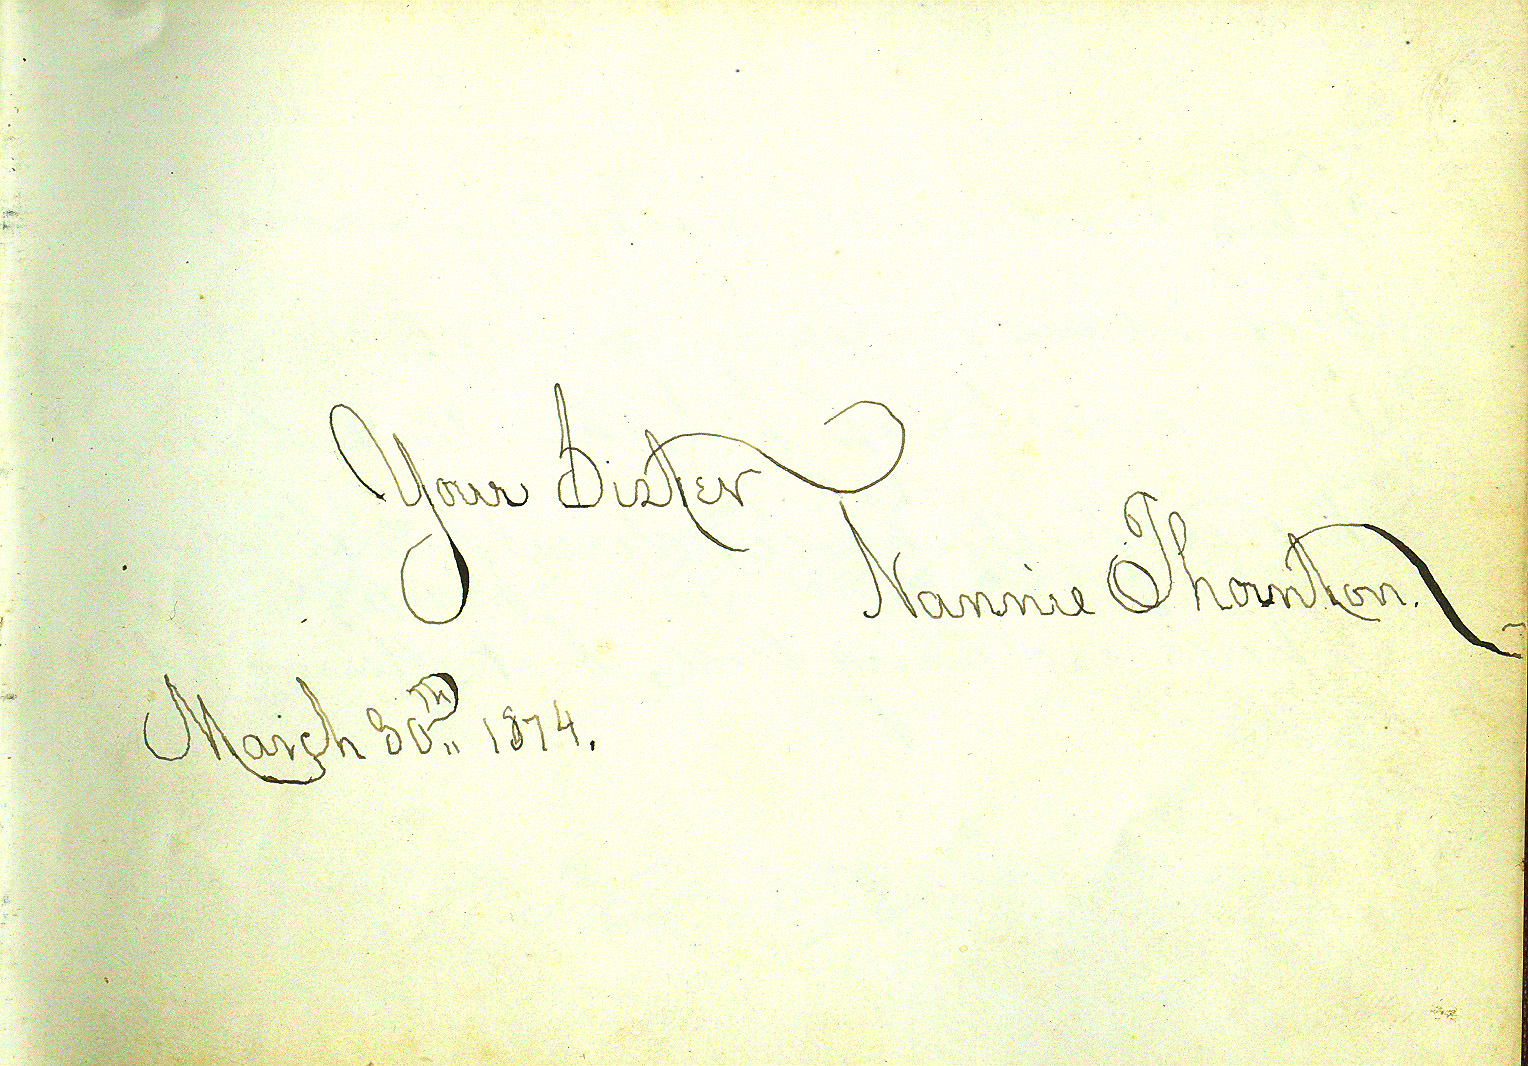 Your Sister
Nannie Thornton.
March 30TH 1874.